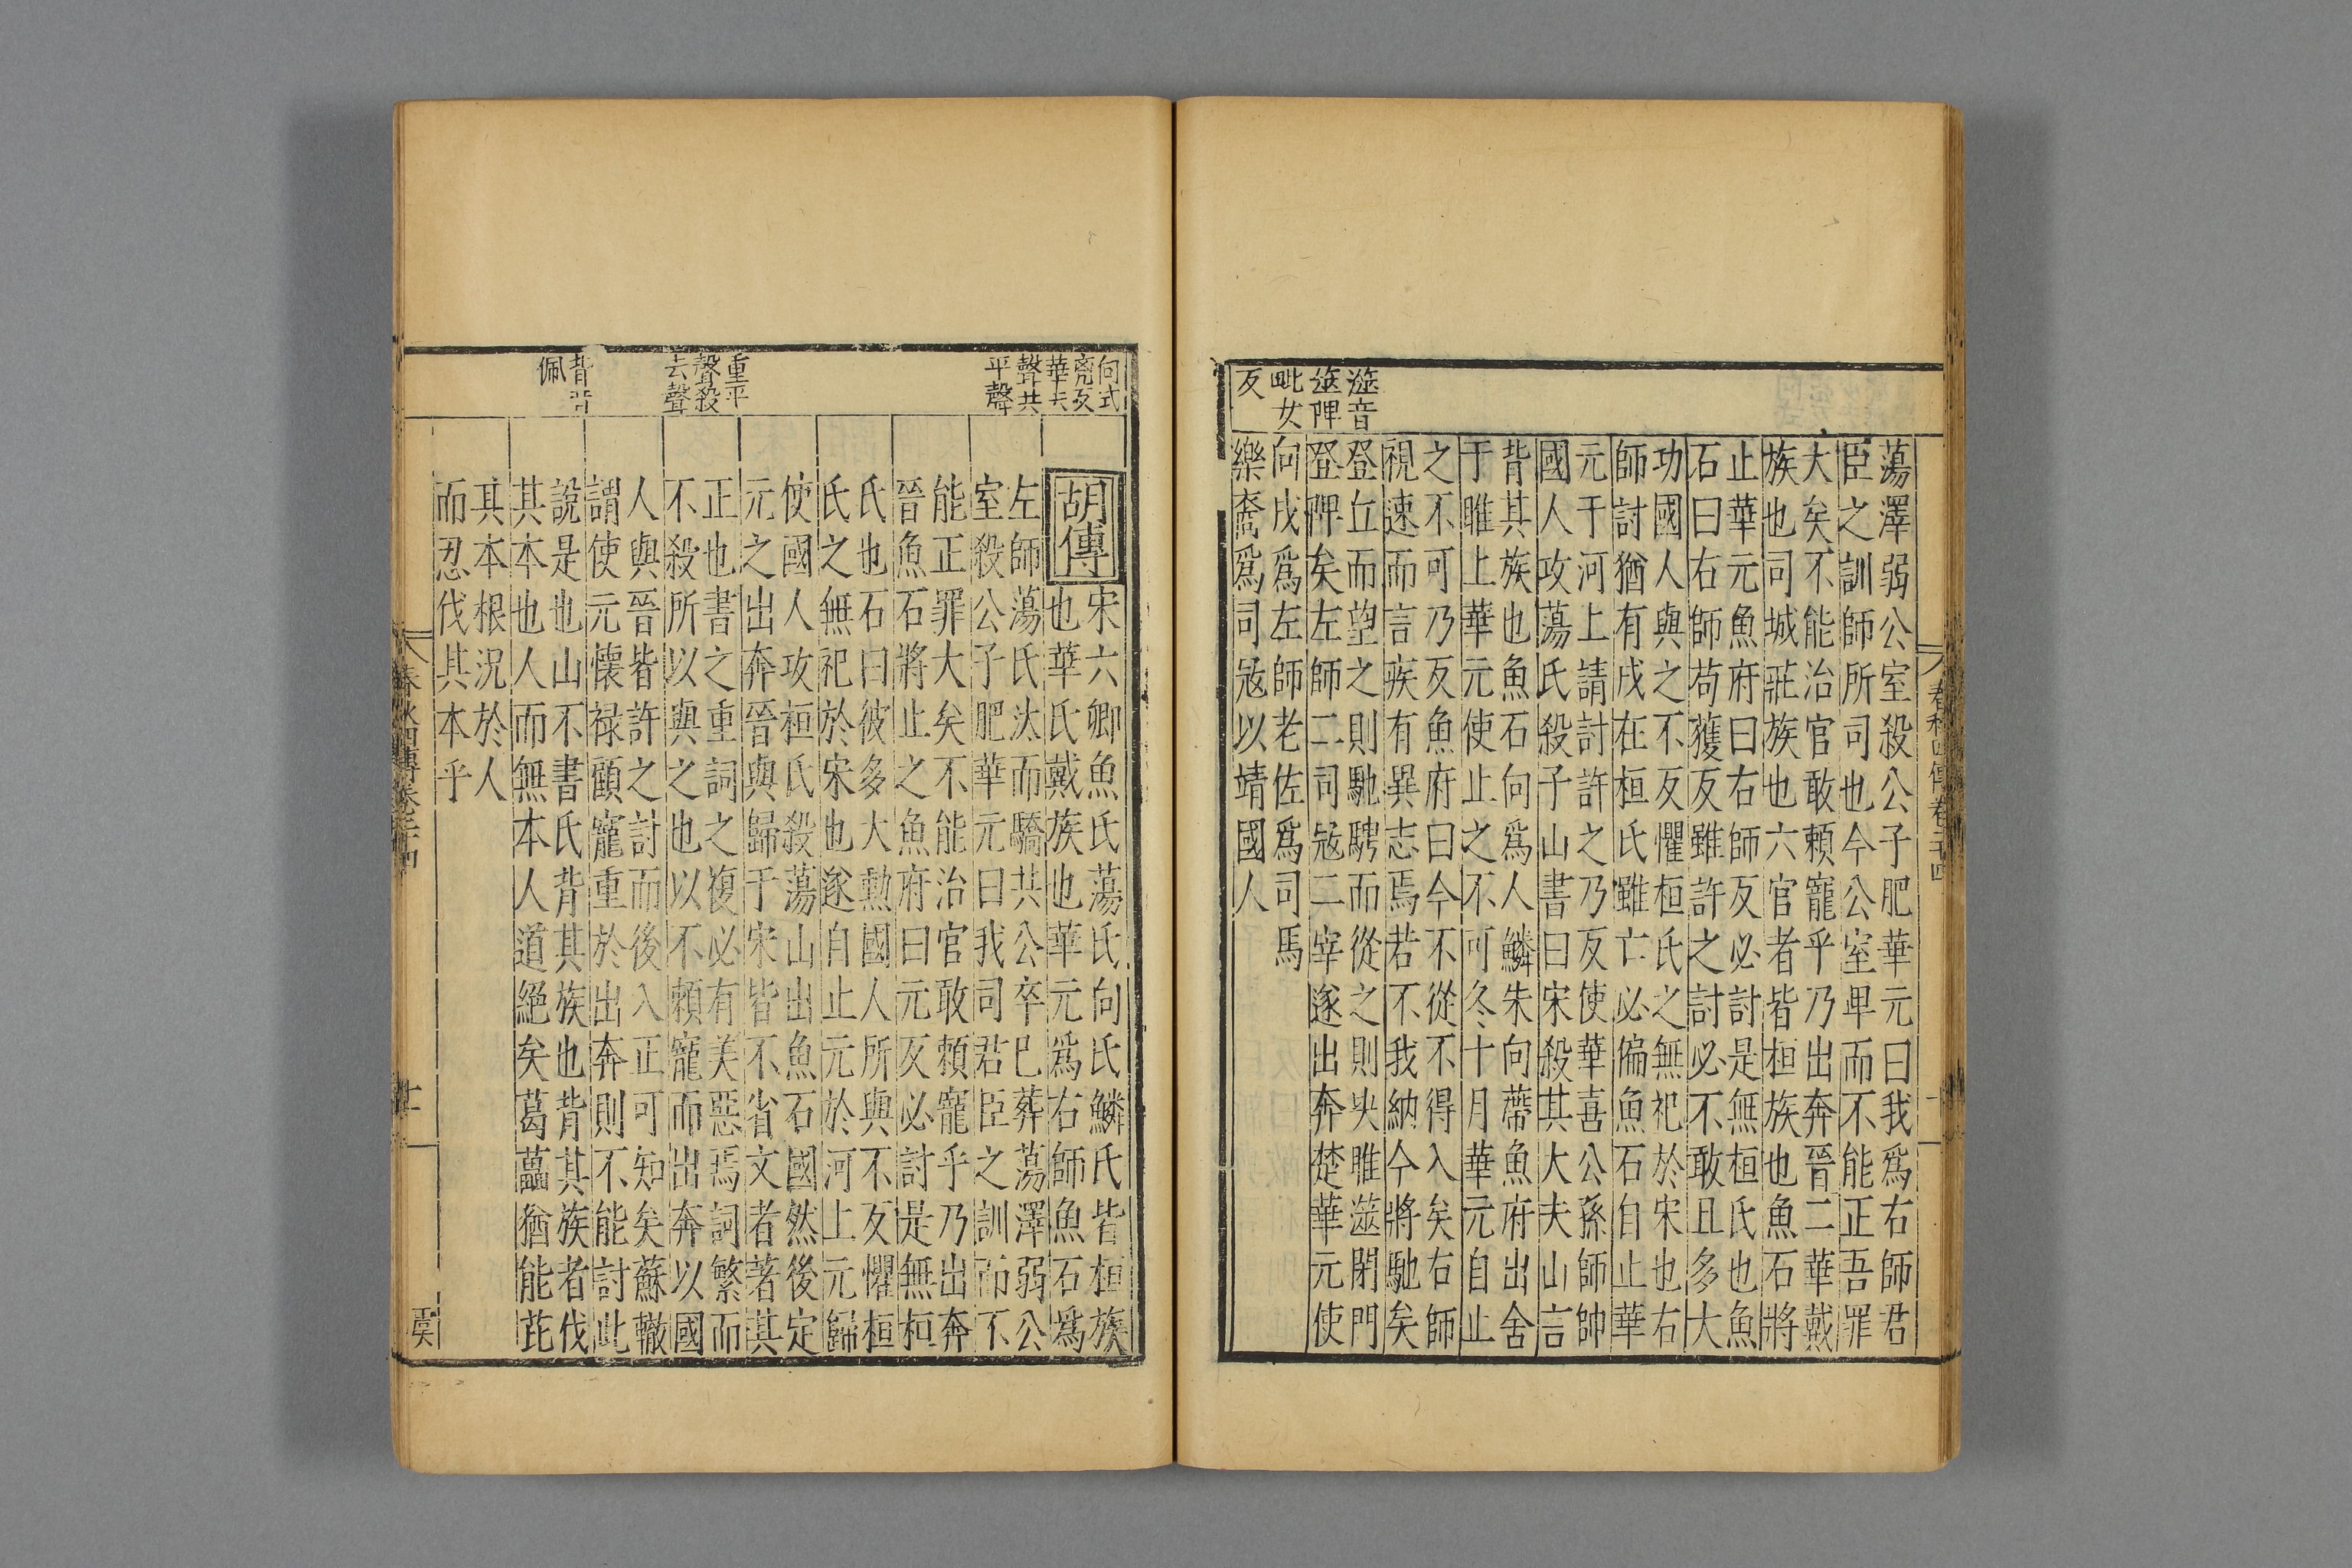 澨音
筮陴
毗女
反
蕩澤弱公室殺公子肥華元曰我爲右師君
臣之訓師所司也今公室卑而不能正吾罪
大矣不能治官敢賴寵乎乃出奔晉二華戴
族也司城莊族也六官者皆桓族也魚石將
止華元魚府曰右師反必討是無桓氏也魚
石曰右師苟獲反雖許之討必不敢且多大
功國人與之不反懼桓氏之無祀於宋也右
師討猶有戌在桓氏雖亡必偏魚石自止華
元于河上請討許之乃反使華喜公孫師帥
國人攻蕩氏殺子山書曰宋殺其大夫山言
背其族也魚石向爲人鱗朱向帶魚府出舍
于睢上華元使止之不可冬十月華元自止
之不可乃反魚府曰今不從不得入矣右師
視速而言疾有異志焉若不我納今將馳矣
登丘而望之則馳騁而從之則决睢澨閉門
登陴矣左師二司寇二宰遂出奔楚華元使
向戌爲左師老佐爲司馬
樂裔爲司寇以靖國人
向式
亮反
華去
聲共
平聲
重平
聲殺
去聲
背音
佩
胡傳
宋六卿魚氏蕩氏向氏鱗氏皆桓族
也華氏戴族也華元爲右師魚石爲
左師蕩氏汰而驕共公卒巳葬蕩澤弱公
室殺公子肥華元曰我司君臣之訓而不
能正罪大矣不能治官敢賴寵乎乃出奔
晉魚石將止之魚府曰元反必討是無桓
氏也石曰彼多大勲國人所與不反懼桓
氏之無祀於宋也遂自止元於河上元歸
使國人攻桓氏殺蕩山出魚石國然後定
元之出奔晉與歸于宋皆不省文者著其
正也書之重詞之複必有美惡焉詞繁而
不殺所以與之也以不賴寵而出奔以國
人與晉皆許之討而後入正可知矣蘇轍
謂使元懷祿顧寵重於出奔則不能討此
說是也山不書氏背其族也背其族者伐
其本也人而無本人道絕矣葛藟猶能芘
其本根況於人
而忍伐其本乎
春秋四傳卷二十四